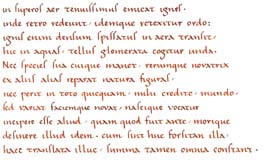 in superos aer tenuissimus emicat ignes.
inde retro redeunt, idemque retexitur ordo:
ignis enim densum spissatus in aera transit,
hic in aquas, tellus glomerata cogitur unda.
Nec species sua cuique manet, rerumque novatrix
ex aliis alias reparat natura figuras.
nec perit in toto quicquam, mihi credite, mundo.
sed variat faciemque novat, nascique vocatur
incipere esse aliud, quam quod fuit ante, morique
desinere illud idem. cum sint huc forsitan illa
haec translata illuc, summa tamen omnia constant.